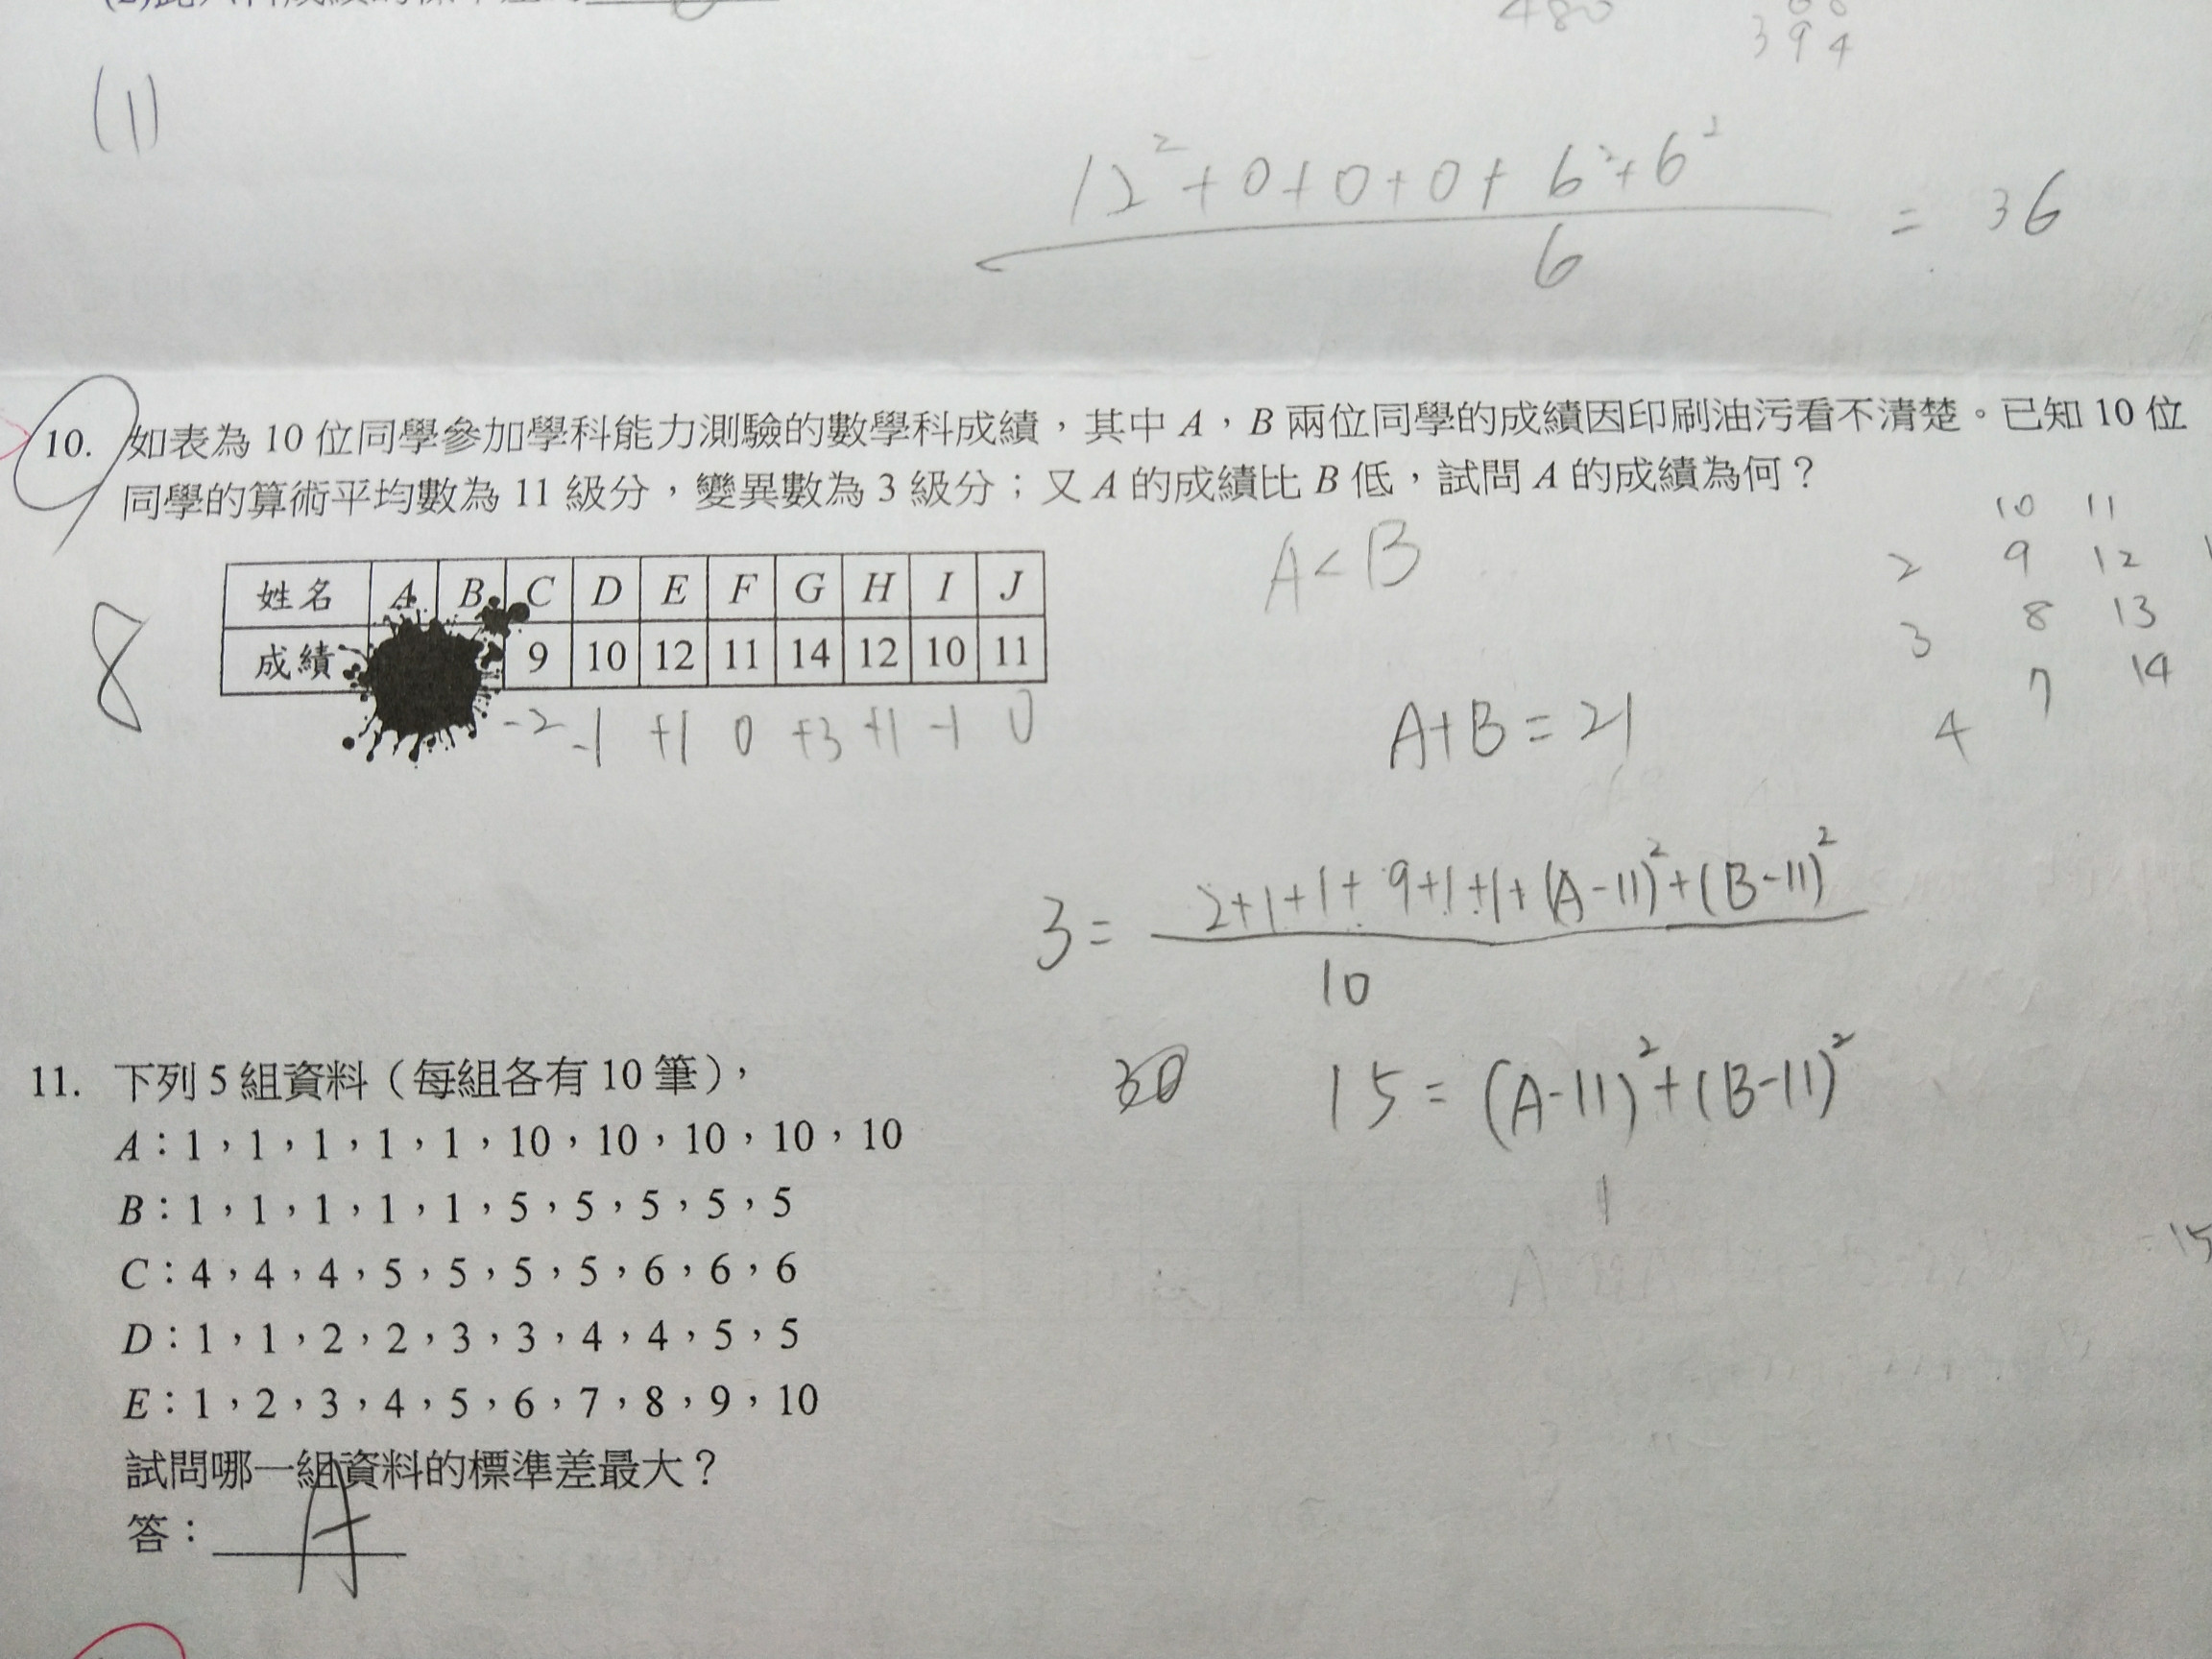 480
394
(1)
12² + 0 + 0 + 0 + 6² + 6²
6
= 36
10. 如表為 10 位同學參加學科能力測驗的數學科成績，其中 A，B 兩位同學的成績因印刷油污看不清楚。已知 10 位
同學的算術平均數為 11 級分，變異數為 3 級分；又 A 的成績比 B 低，試問 A 的成績為何？
姓名 A B C D E F G H I J
成績 9 10 12 11 14 12 10 11
-2 -1 +1 0 +3 +1 -1 0
8
A < B
10 11
2 9 12
3 8 13
4 7 14
A+B = 21
3 = 2+1+1+9+1+1+(A-11)²+(B-11)²
10
30 15 = (A-11)²+(B-11)²
1
=15
11. 下列 5 組資料（每組各有 10 筆），
A：1，1，1，1，1，10，10，10，10，10
B：1，1，1，1，1，5，5，5，5，5
C：4，4，4，5，5，5，5，6，6，6
D：1，1，2，2，3，3，4，4，5，5
E：1，2，3，4，5，6，7，8，9，10
試問哪一組資料的標準差最大？
答： A